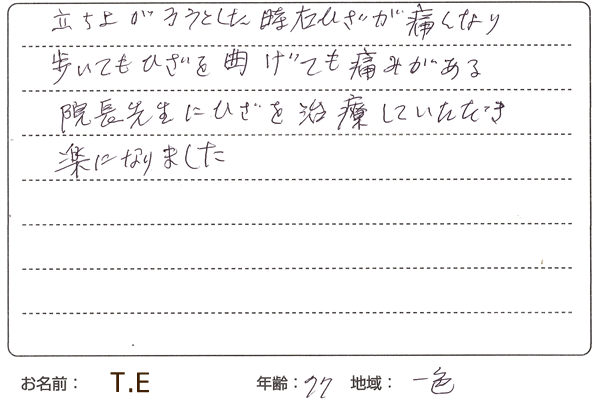 立ち上がろうとした時右ひざが痛くなり
歩いてもひざを曲げても痛みがある
院長先生にひざを治療していただき
楽になりました
お名前： T.E 年齢：77 地域： 一色